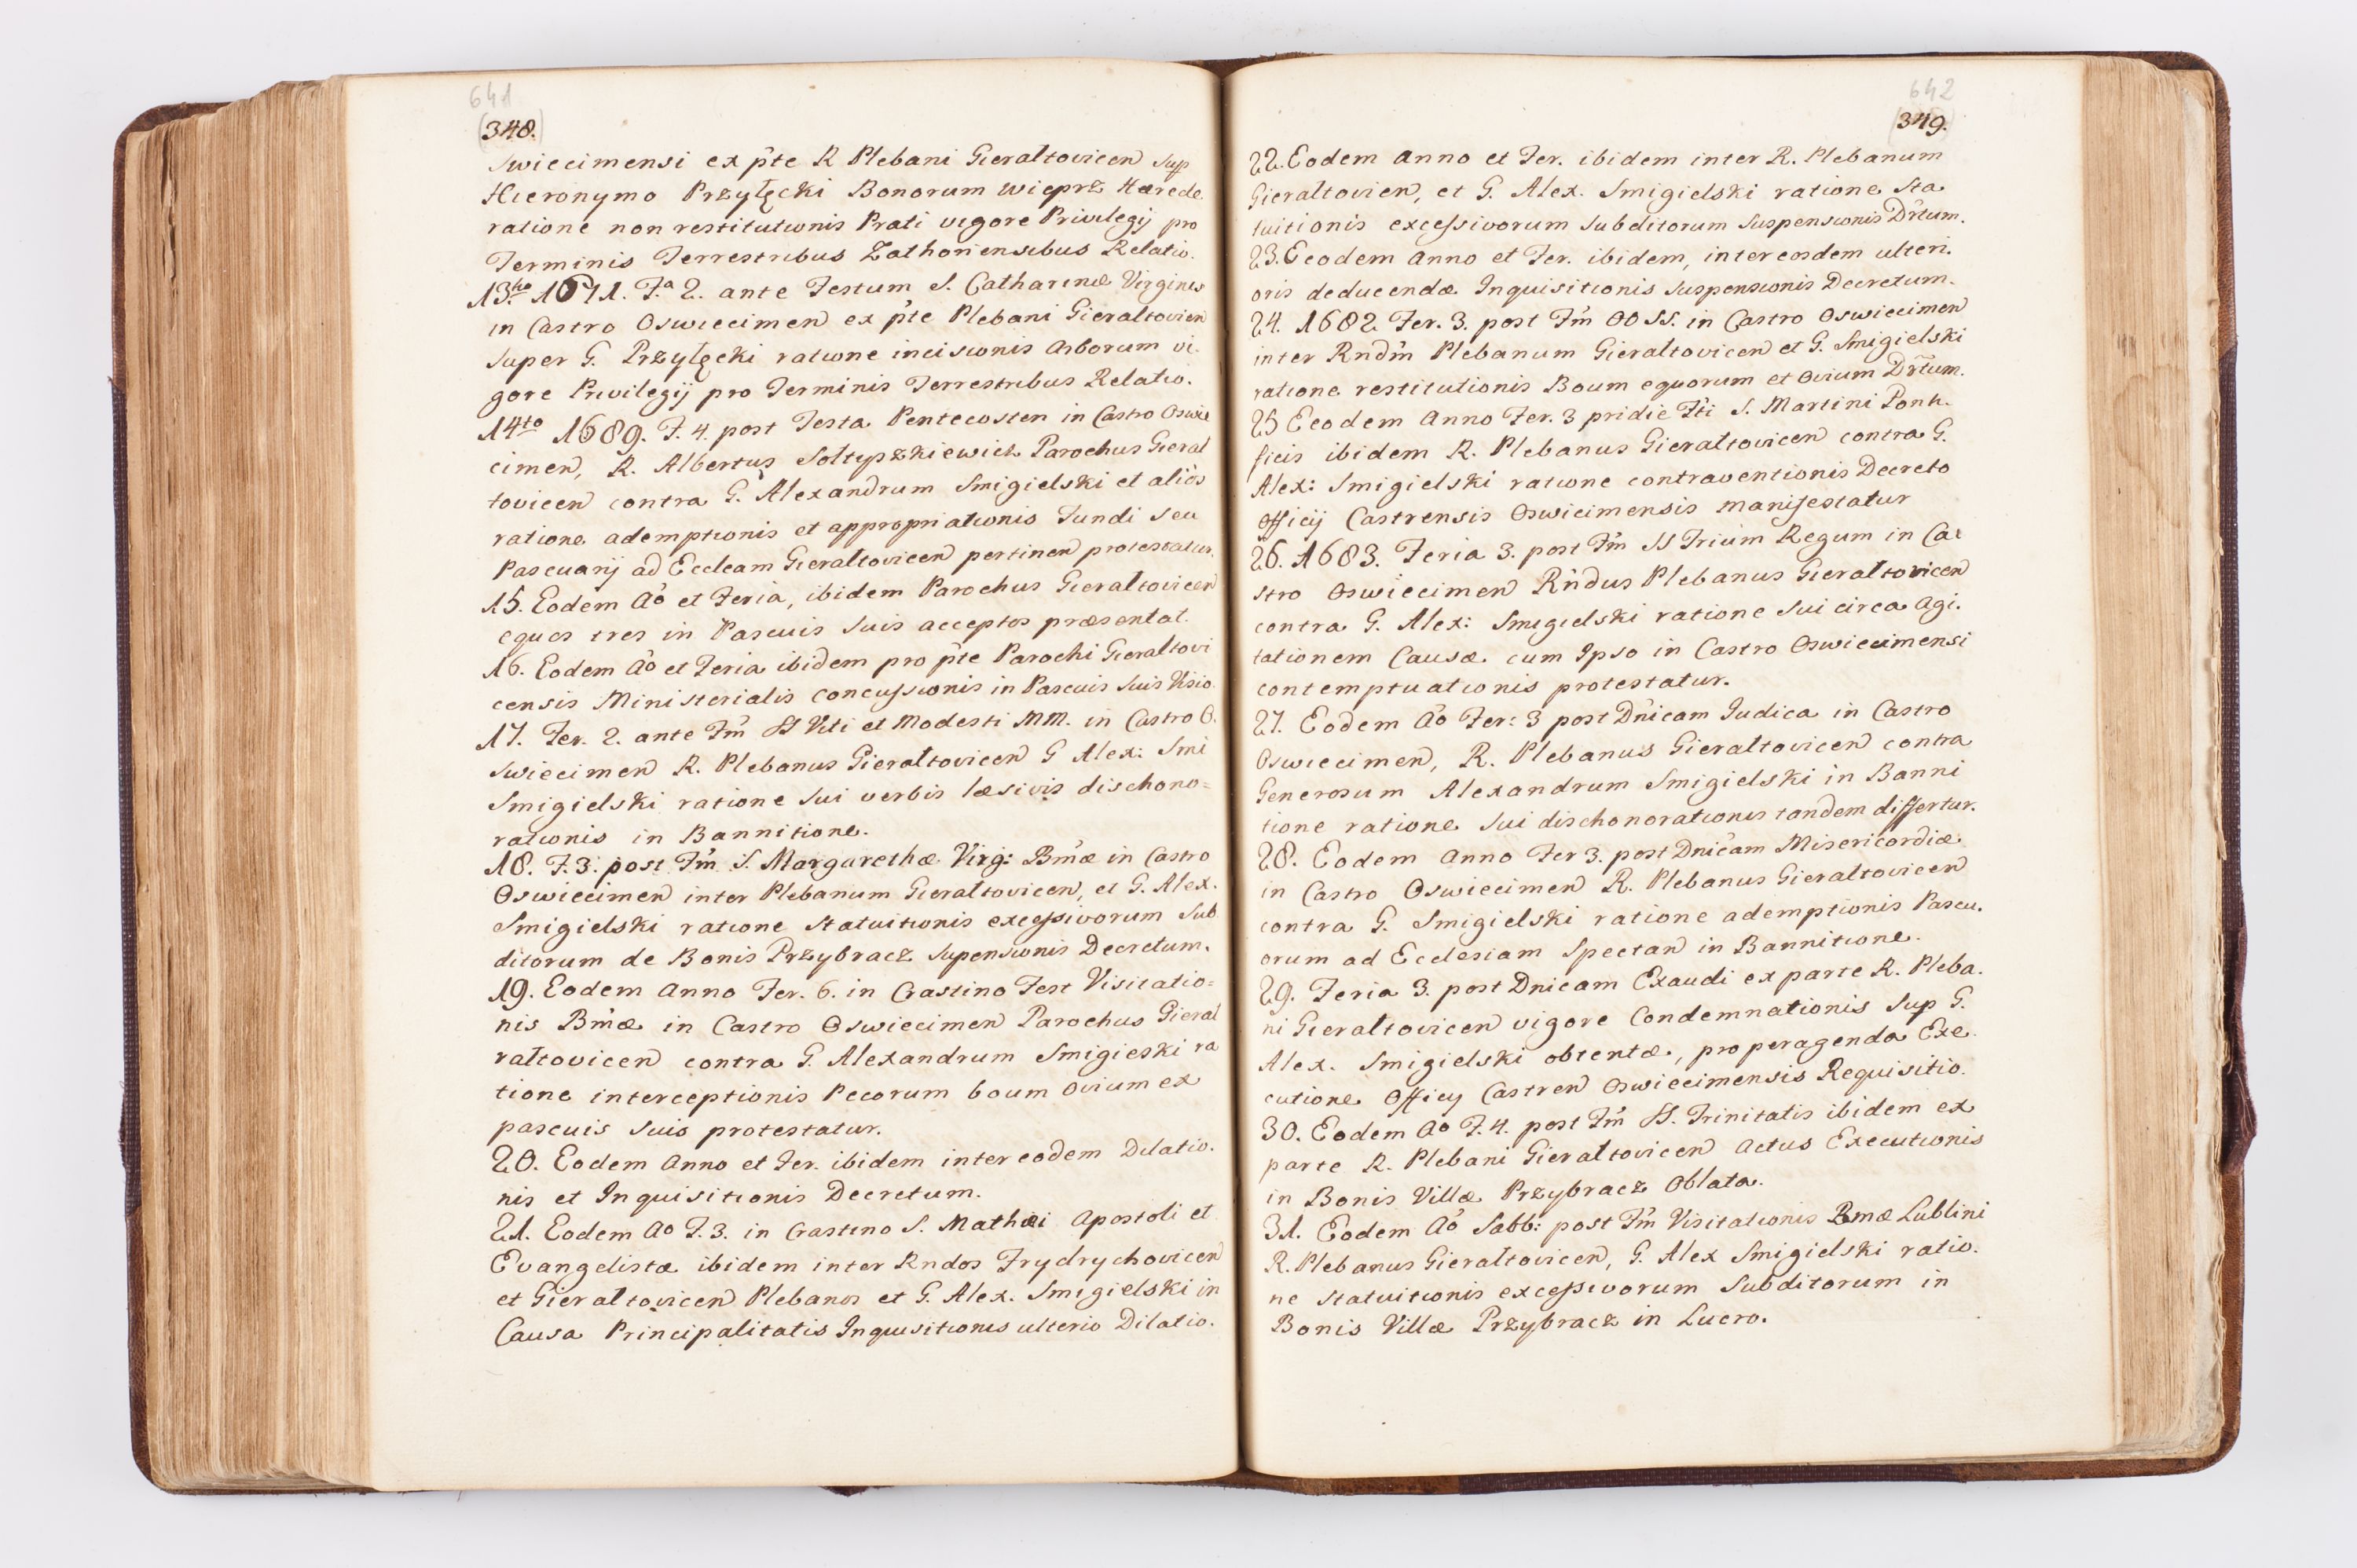 641
(348.)
Swiecimensi ex pte R Plebani Gieraltovicen Sup
Hieronymo Przyłęcki Bonorum Wieprz Hærede
ratione non restitutionis Prati vigore Privilegij pro
Terminis Terrestribus Zathoriensibus Relatio.
13.tio 1671. F.a 2. ante Festum S. Catharinæ Virginis
in Castro Oswiecimen ex pte Plebani Gieraltovien
Super G. Przyłęcki ratione incisionis Arborum vi-
gore Privilegij pro Terminis Terrestribus Relatio.
14to 1689. F. 4. post Festa Pentecosten in Castro Oswie
cimen, R. Albertus Soltyszkiewicz Parochus Gieral
tovicen contra G. Alexandrum Smigielski et aliòs
ratione ademptionis et appropriationis Fundi seu
Pascuarij ad Eccleam Gieraltovicen pertinen protestatur.
15. Eodem Aò et Feria, ibidem Parochus Gieraltovicen
equos tres in Pascuis suis acceptos præsentat.
16. Eodem Aò et Feria ibidem pro pte Parochi Gieraltovi
censis Ministerialis concussionis in Pascuis suis Visio
17. Fer. 2. ante Fm SS Viti et Modesti MM. in Castro O.
swiecimen R. Plebanus Gieraltovicen G Alex: Smi
Smigielski ratione sui verbis læsivis dischono=
rationis in Bannitione.
18. F. 3. post Fm S. Margarethæ Virg: Bmæ in Castro
Oswiecimen inter Plebanum Gieraltovicen, et G. Alex.
Smigielski ratione Statuitionis excessivorum Sub
ditorum de Bonis Przybracz Supensionis Decretum.
19. Eodem Anno Fer. 6. in Crastino Fest Visitatio=
nis Bmæ in Castro Oswiecimen Parochus Gieral
raltovicen contra G. Alexandrum Smigieski ra
tione interceptionis Pecorum boum ovium ex
pascuis suis protestatur.
20. Eodem Anno et Fer. ibidem inter eodem Dilatio.
nis et Inquisitionis Decretum.
21. Eodem Ao F. 3. in Crastino S. Mathæi Apostoli et
Evangelistæ ibidem inter Rndos Frydrychovicen
et Gieraltovicen Plebanos et G. Alex. Smigielski in
Causa Principalitatis Inquisitionis ulterio Dilatio.
642
(349.)
22. Eodem Anno et Fer. ibidem inter R. Plebanum
Gieraltovien, et G. Alex. Smigielski ratione Sta
tuitionis excessivorum Subditorum Suspensionis Drtum.
23. Eeodem Anno et Fer. ibidem, inter eosdem ulteri.
oris deducendæ Inquisitionis Suspensionis Decretum.
24. 1682 Fer. 3. post Fm OO SS. in Castro Oswiecimen
inter Rndm Plebanum Gieraltovicen et G. Smigielski
ratione restitutionis Boum equorum et Ovium Drtum.
25 Eeodem Anno Fer. 3 pridie Fti S. Martini Ponti.
ficis ibidem R. Plebanus Gieraltovicen contra G.
Alex: Smigielski ratione contraventionis Decreto
Officij Castrensis Oswicimensis manifestatur
26. 1683. Feria 3. post Fm SS Trium Regum in Ca:
stro Oswiecimen Rndus Plebanus Gieraltovicen
contra G. Alex: Smigielski ratione Sui circa Agi.
tationem Causæ cum Ipso in Castro Oswiecimensi
contemptuationis protestatur.
27. Eodem Aò Fer: 3 post Dnicam Iudica in Castro
Oswiecimen, R. Plebanus Gieraltovicen contra
Generosum Alexandrum Smigielski in Banni
tione ratione Sui dischonorationis tandem differtur.
28. Eodem Anno Fer 3. post Dnicam Misericordiæ
in Castro Oswiecimen R. Plebanus Gieraltovicen
contra G. Smigielski ratione ademptionis Pascu.
orum ad Ecclesiam Spectan in Bannitione.
29. Feria 3. post Dnicam Exaudi ex parte R. Pleba.
ni Gieraltovicen vigore Condemnationis Sup G.
Alex. Smigielski obtentæ, pro peragenda Exe
cutione Officij Castren Oswiecimensis Requisitio.
30. Eodem Ao F. 4. post Fm SS. Trinitatis ibidem ex
parte R. Plebani Gieraltovicen Actus Executionis
in Bonis Villæ Przybracz Oblata.
31. Eodem Aò Sabb: post Fm Visitationis Bmæ Lublini
R. Plebanus Gieraltovicen, G. Alex Smigielski ratio.
ne Statuitionis excessivorum Subditorum in
Bonis Villæ Przybracz in Lucro.